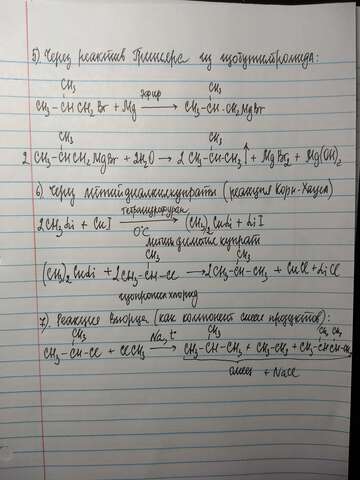 5) Через реактив Гриньяра из изобутилбромида:
CH₃
CH₃-CH CH₂Br + Mg эфир→ CH₃-CH-CH₂MgBr
CH₃
CH₃
2 CH₃-CHCH₂MgBr + 2H₂O → 2 CH₃-CH-CH₃↑ + MgBr₂ + Mg(OH)₂
CH₃
6) Через литийдиалкилкупраты (реакция Кори-Хауса)
2CH₃Li + CuI тетрагидрофуран→ (CH₃)₂CuLi + LiI
0°C
литий диметил купрат
CH₃ CH₃
(CH₃)₂CuLi + 2CH₃-CH-Cl → 2CH₃-CH-CH₃ + CuCl + LiCl
изопропил хлорид
7) Реакция Вюрца (как компонент смеси продуктов):
CH₃ CH₃ CH₃ CH₃
CH₃-CH-Cl + ClCH₃ Na, t°→ CH₃-CH-CH₃ + CH₃-CH₃ + CH₃-CHCH-CH₃
смесь + NaCl